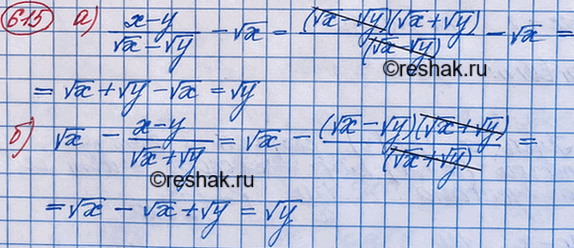 615 а) (x-y)/(√x-√y) - √x = ((√x-√y)(√x+√y))/(√x-√y) - √x =
©reshak.ru
= √x+√y-√x = √y
б) √x - (x-y)/(√x+√y) = √x - ((√x-√y)(√x+√y))/(√x+√y) =
©reshak.ru
= √x - √x+√y = √y